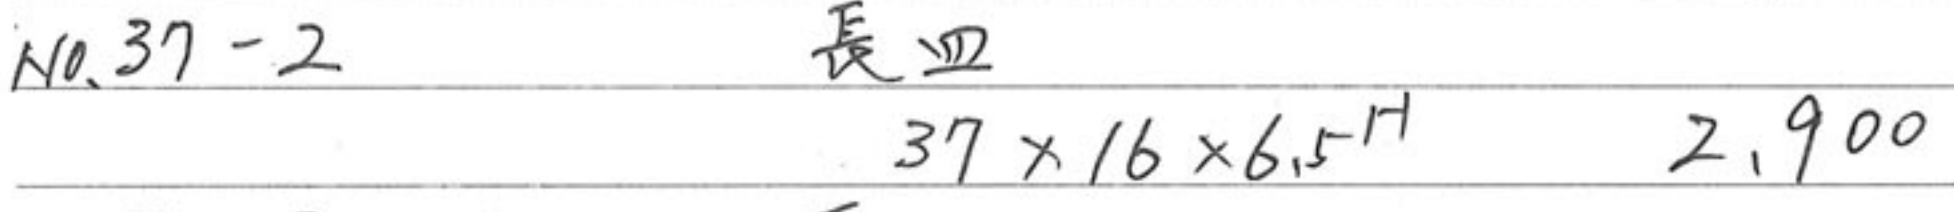 No.37-2 長皿
37×16×6.5H 2,900